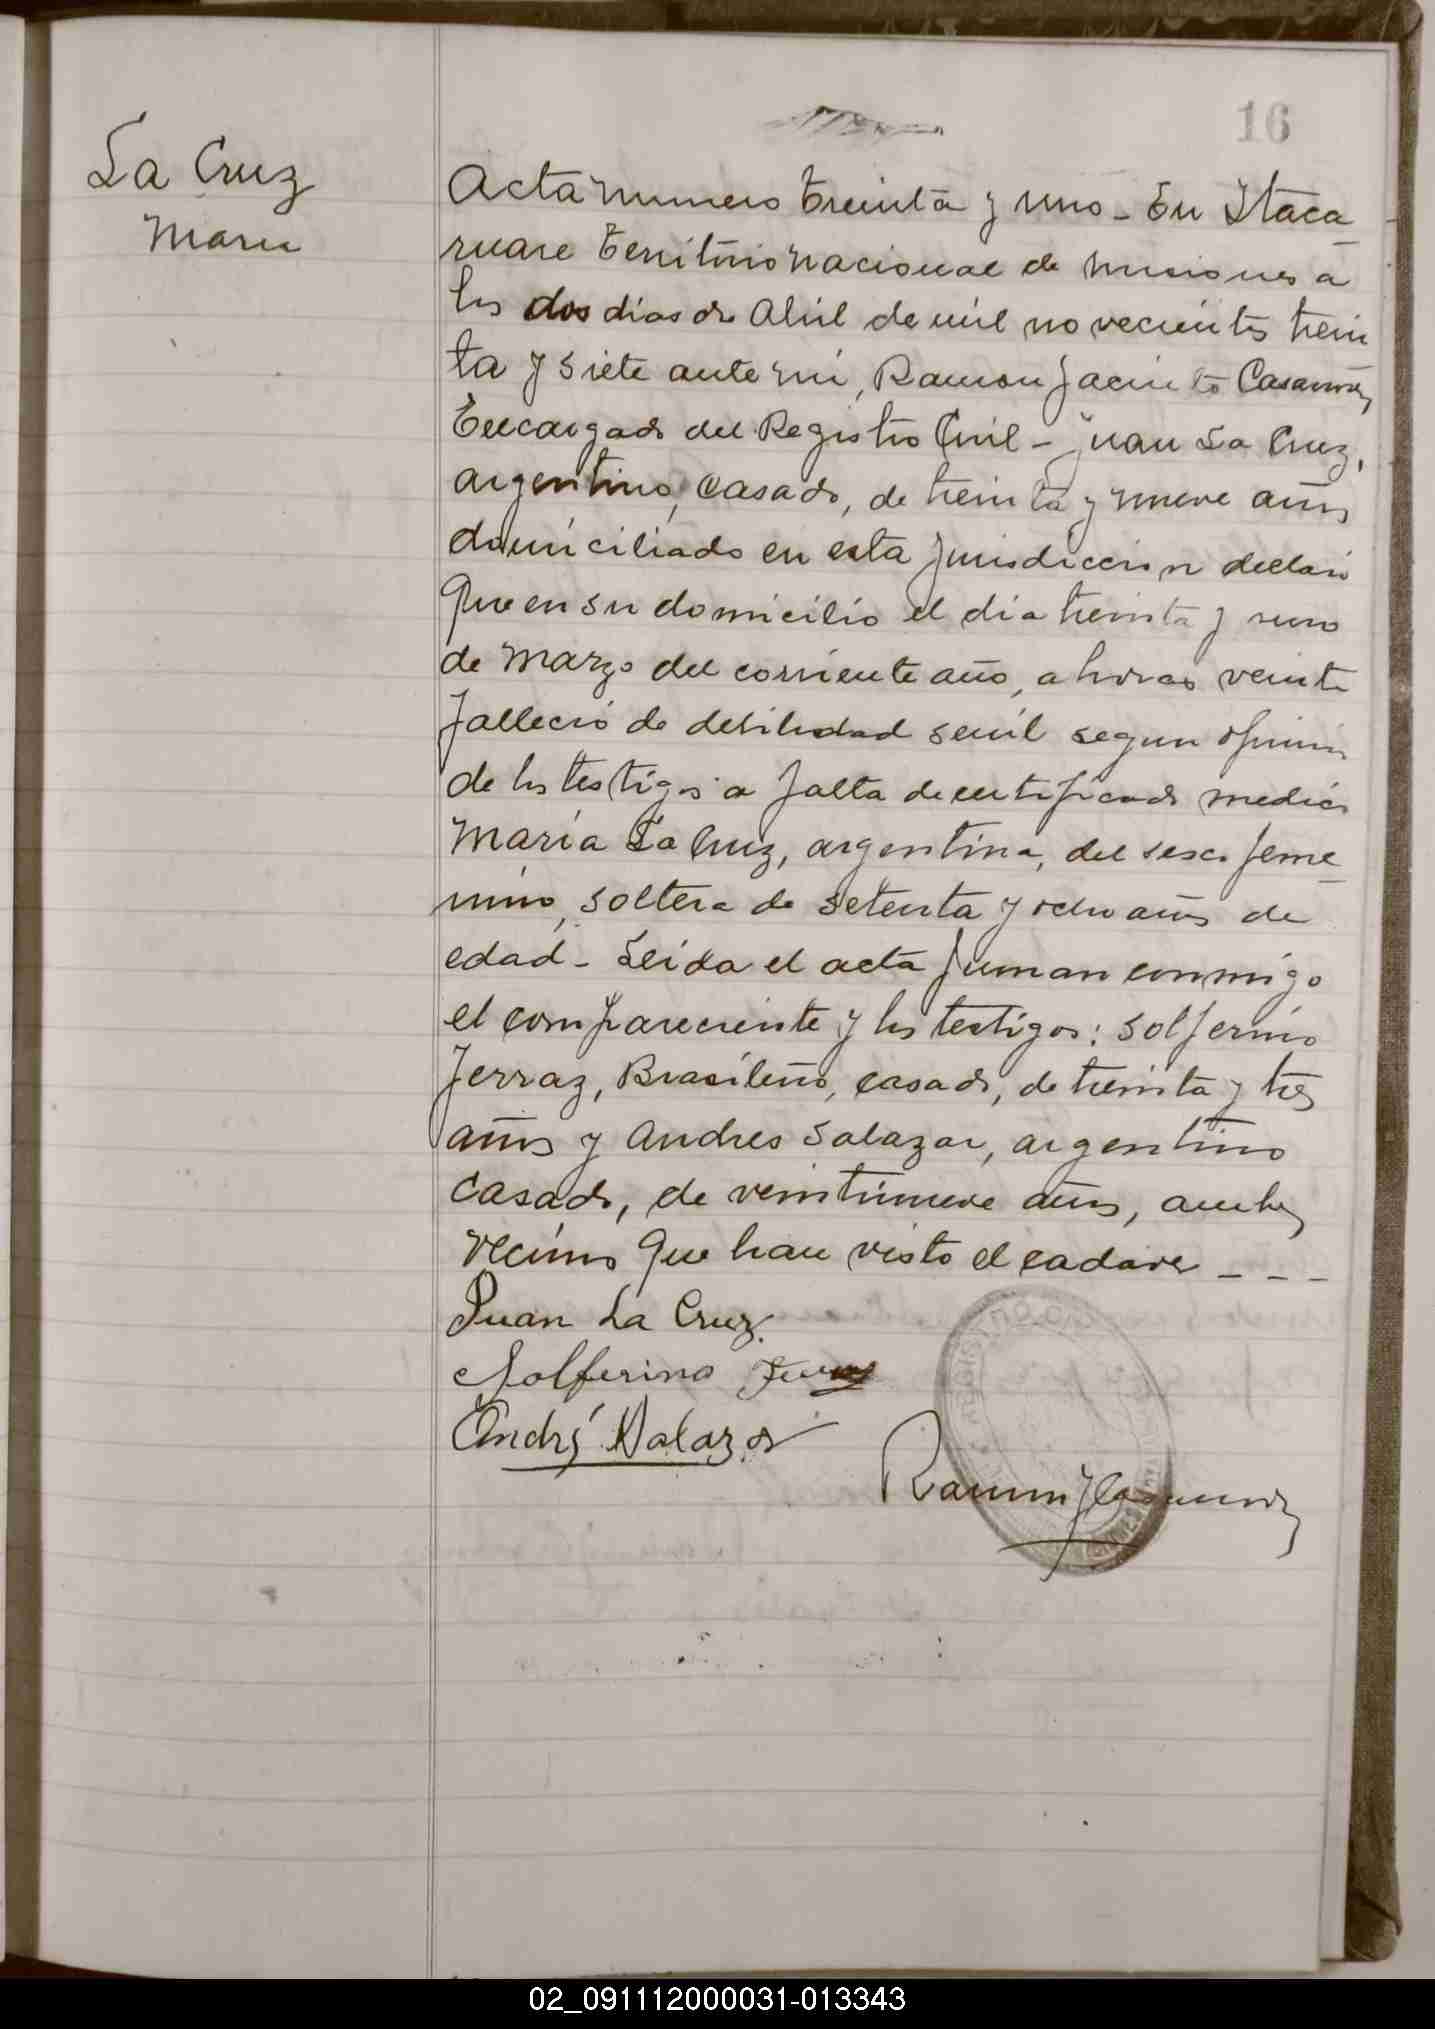 16
La Cruz
Maria
Acta numero treinta y uno - En Itaca
ruare territorio nacional de misiones a
los dos dias de Abril de mil novecientos trein
ta y siete ante mi, Ramon Jacinto
Encargado del Registro Civil - Juan La Cruz,
argentino, casado, de treinta y nueve años
domiciliado en esta jurisdiccion declaró
Que en su domicilio el dia treinta y uno
de Marzo del corriente año, a horas veinte
falleció de debilidad senil segun opinion
de los testigos a falta de certificado medico
María La Cruz, argentina, del sexo feme
nino, soltera de setenta y ocho años de
edad - Leida el acta firman conmigo
el compareciente y los testigos: Solferino
Ferraz, Brasileño, casado, de treinta y tres
años y Andres Salazar, argentino
casado, de veintinueve años, ambos
vecinos Que han visto el cadaver - - -
Juan La Cruz.
Solferino Ferraz
André Salazar
Ramon J
02_091112000031-013343